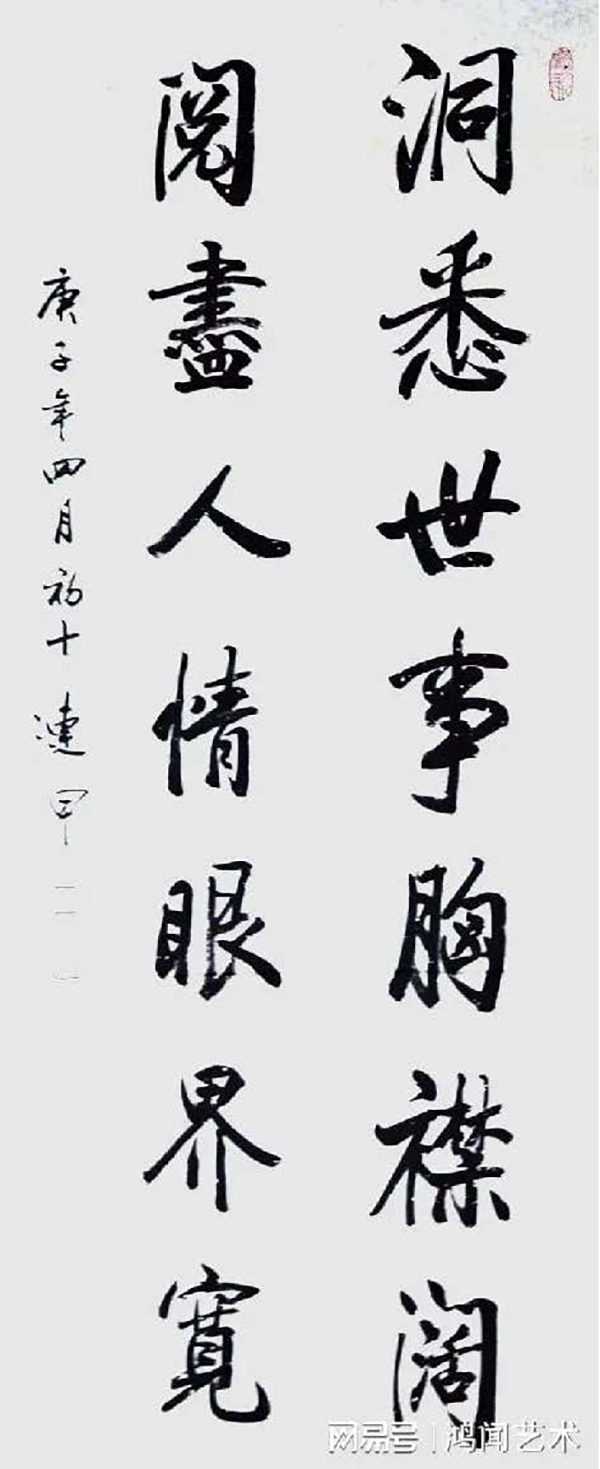 洞悉世事胸襟阔
閱盡人情眼界寬
庚子年四月初十 連甲
网易号|鸿闻艺术